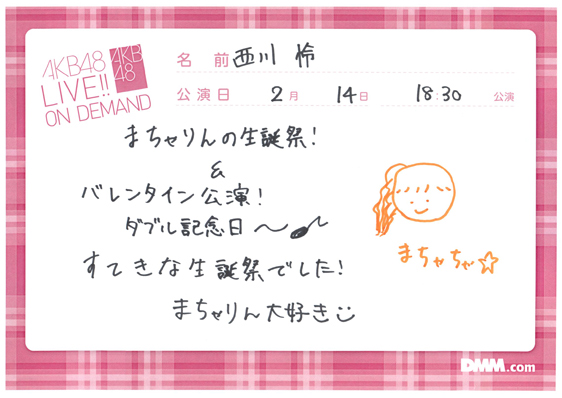 AKB48
LIVE!!
ON DEMAND
AKB
48
名前 西川 怜
公演日 2月 14日 18:30 公演
まちゃりんの生誕祭!
&
バレンタイン公演!
ダブル記念日〜♪
すてきな生誕祭でした!
まちゃりん大好き
まちゃちゃ☆
DMM.com